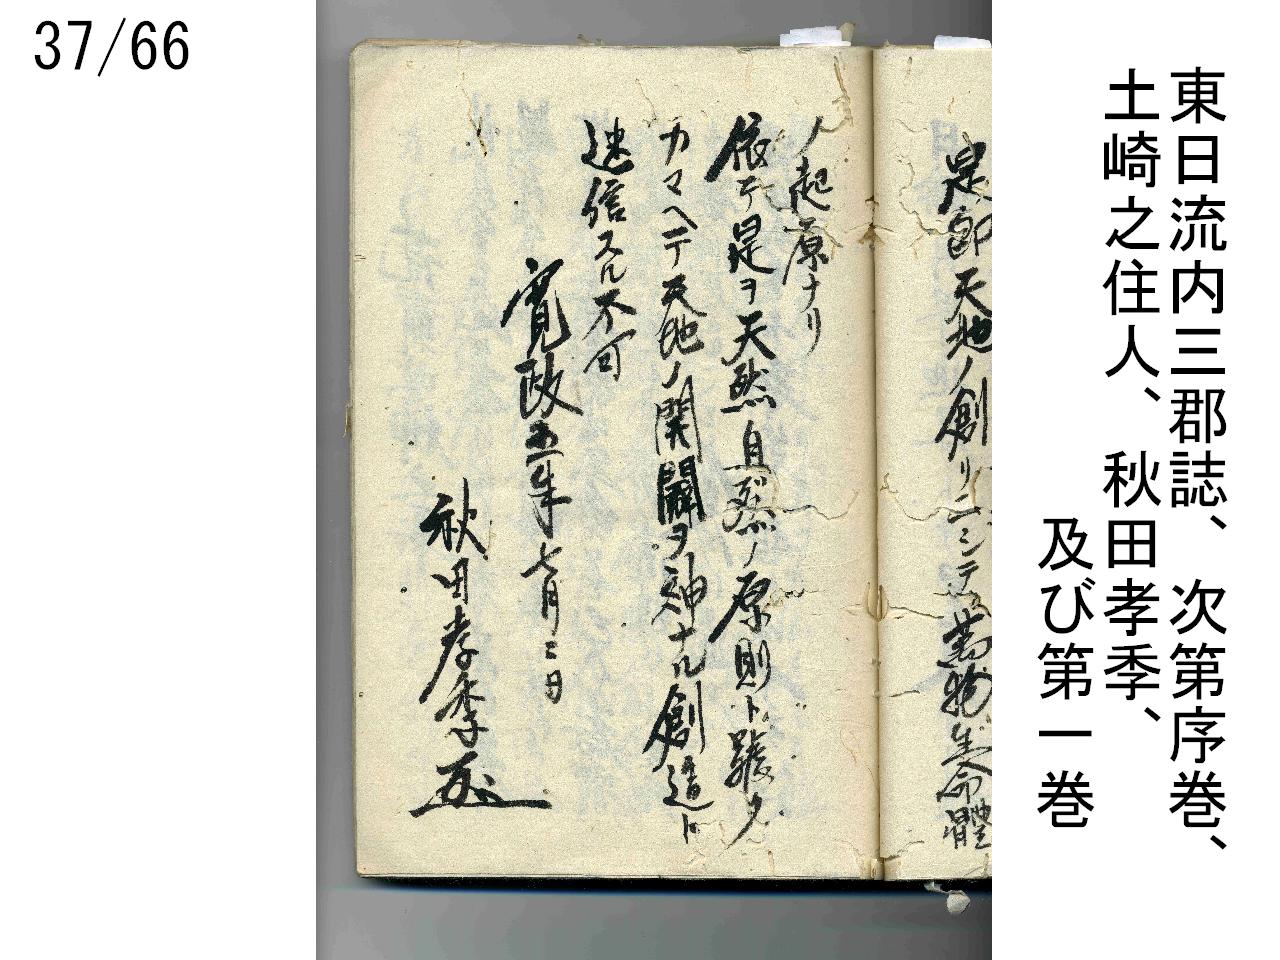 37/66
東日流内三郡誌、次第序巻、
土崎之住人、秋田孝季、
及び第一巻
是即天地ノ創リニシテ萬物生命體
ノ起原ナリ
依テ是ヲ天然自然ノ原則ト號ス
カマヘテ天地ノ開闢ヲ神ナル創造ト
迷信スル不可
寛政五年七月二日
秋田孝季